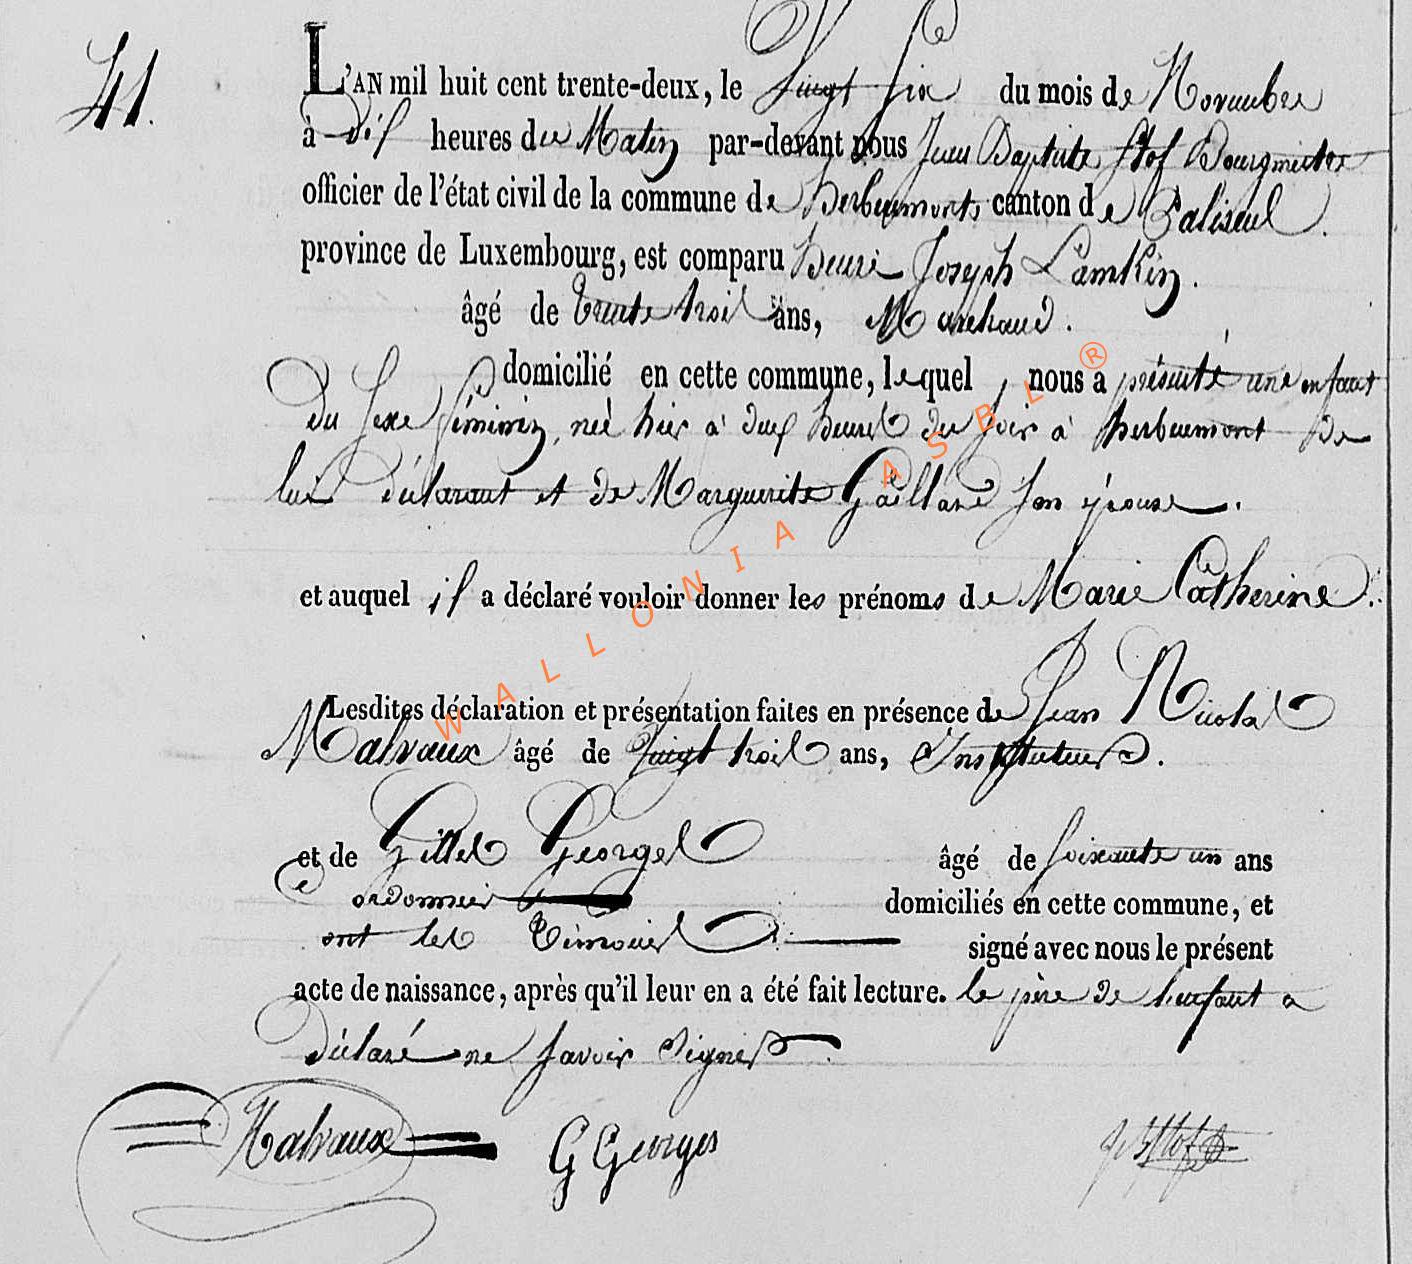 41.
L'AN mil huit cent trente-deux, le Vingt Six du mois de Novembre
à Dix heures du Matin par-devant nous Jean Baptiste Stof Bourgmestre
officier de l'état civil de la commune de Herbeumont, canton de Paliseul.
province de Luxembourg, est comparu Henri Joseph Lamkin.
âgé de trente trois ans, Marchand.
domicilié en cette commune, lequel, nous a présenté une enfant
Du Sexe féminin, née hier à deux heures du soir à herbeumont De
lui déclarant et de Marguerite Gaillard son épouse.
et auquel il a déclaré vouloir donner les prénoms de Marie Catherine.
Lesdites déclaration et présentation faites en présence de Jean Nicolas
Malvaux âgé de Vingt trois ans, Instituteur.
et de Gilles Georges âgé de soixante un ans
Cordonnier domiciliés en cette commune, et
ont les témoins signé avec nous le présent
acte de naissance, après qu'il leur en a été fait lecture. le père de l'enfant a
Déclaré ne savoir signer.
Malvaux G Georges
WALLONIA ASBL ®